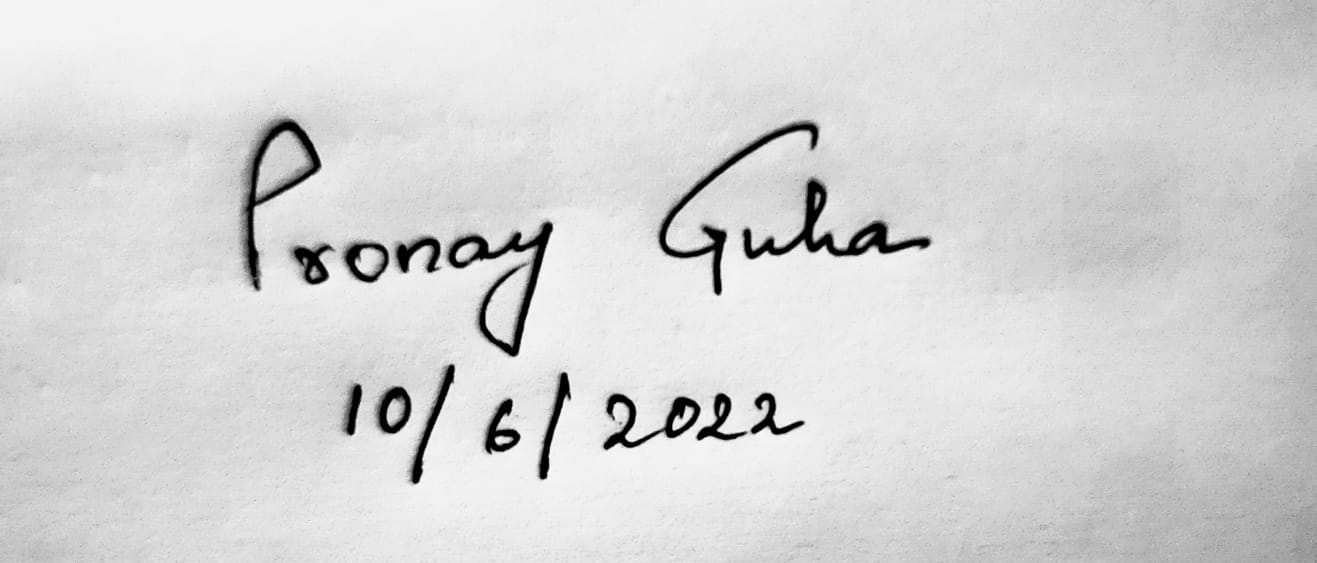 Pronay Guha
10/6/2022